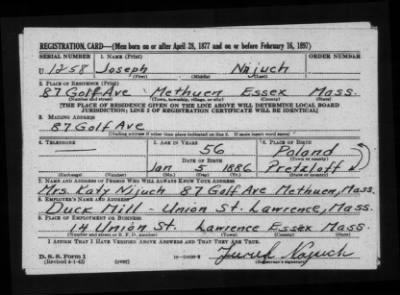 REGISTRATION CARD—(Men born on or after April 28, 1877 and on or before February 16, 1897)
SERIAL NUMBER 1. NAME (Print) ORDER NUMBER
U 1258 Joseph Nijuch
(First) (Middle) (Last)
2. PLACE OF RESIDENCE (Print)
87 Golf Ave Methuen Essex Mass.
(Number and street) (Town, township, village, or city) (County) (State)
[THE PLACE OF RESIDENCE GIVEN ON THE LINE ABOVE WILL DETERMINE LOCAL BOARD
JURISDICTION; LINE 2 OF REGISTRATION CERTIFICATE WILL BE IDENTICAL]
3. MAILING ADDRESS
87 Golf Ave
[Mailing address if other than place indicated on line 2. If same insert word same]
4. TELEPHONE 5. AGE IN YEARS 6. PLACE OF BIRTH
56 Poland
DATE OF BIRTH (Town or county)
Jan 5 1886 Pretzloff
(Exchange) (Number) (Mo.) (Day) (Yr.) (State or country)
7. NAME AND ADDRESS OF PERSON WHO WILL ALWAYS KNOW YOUR ADDRESS
Mrs. Katy Nijuch 87 Golf Ave Methuen, Mass.
8. EMPLOYER'S NAME AND ADDRESS
Duck Mill - Union St. Lawrence, Mass.
9. PLACE OF EMPLOYMENT OR BUSINESS
14 Union St. Lawrence Essex Mass.
(Number and street or R. F. D. number) (Town) (County) (State)
I AFFIRM THAT I HAVE VERIFIED ABOVE ANSWERS AND THAT THEY ARE TRUE.
D. S. S. Form 1
(Revised 4-1-42) (over) (Registrant's signature)